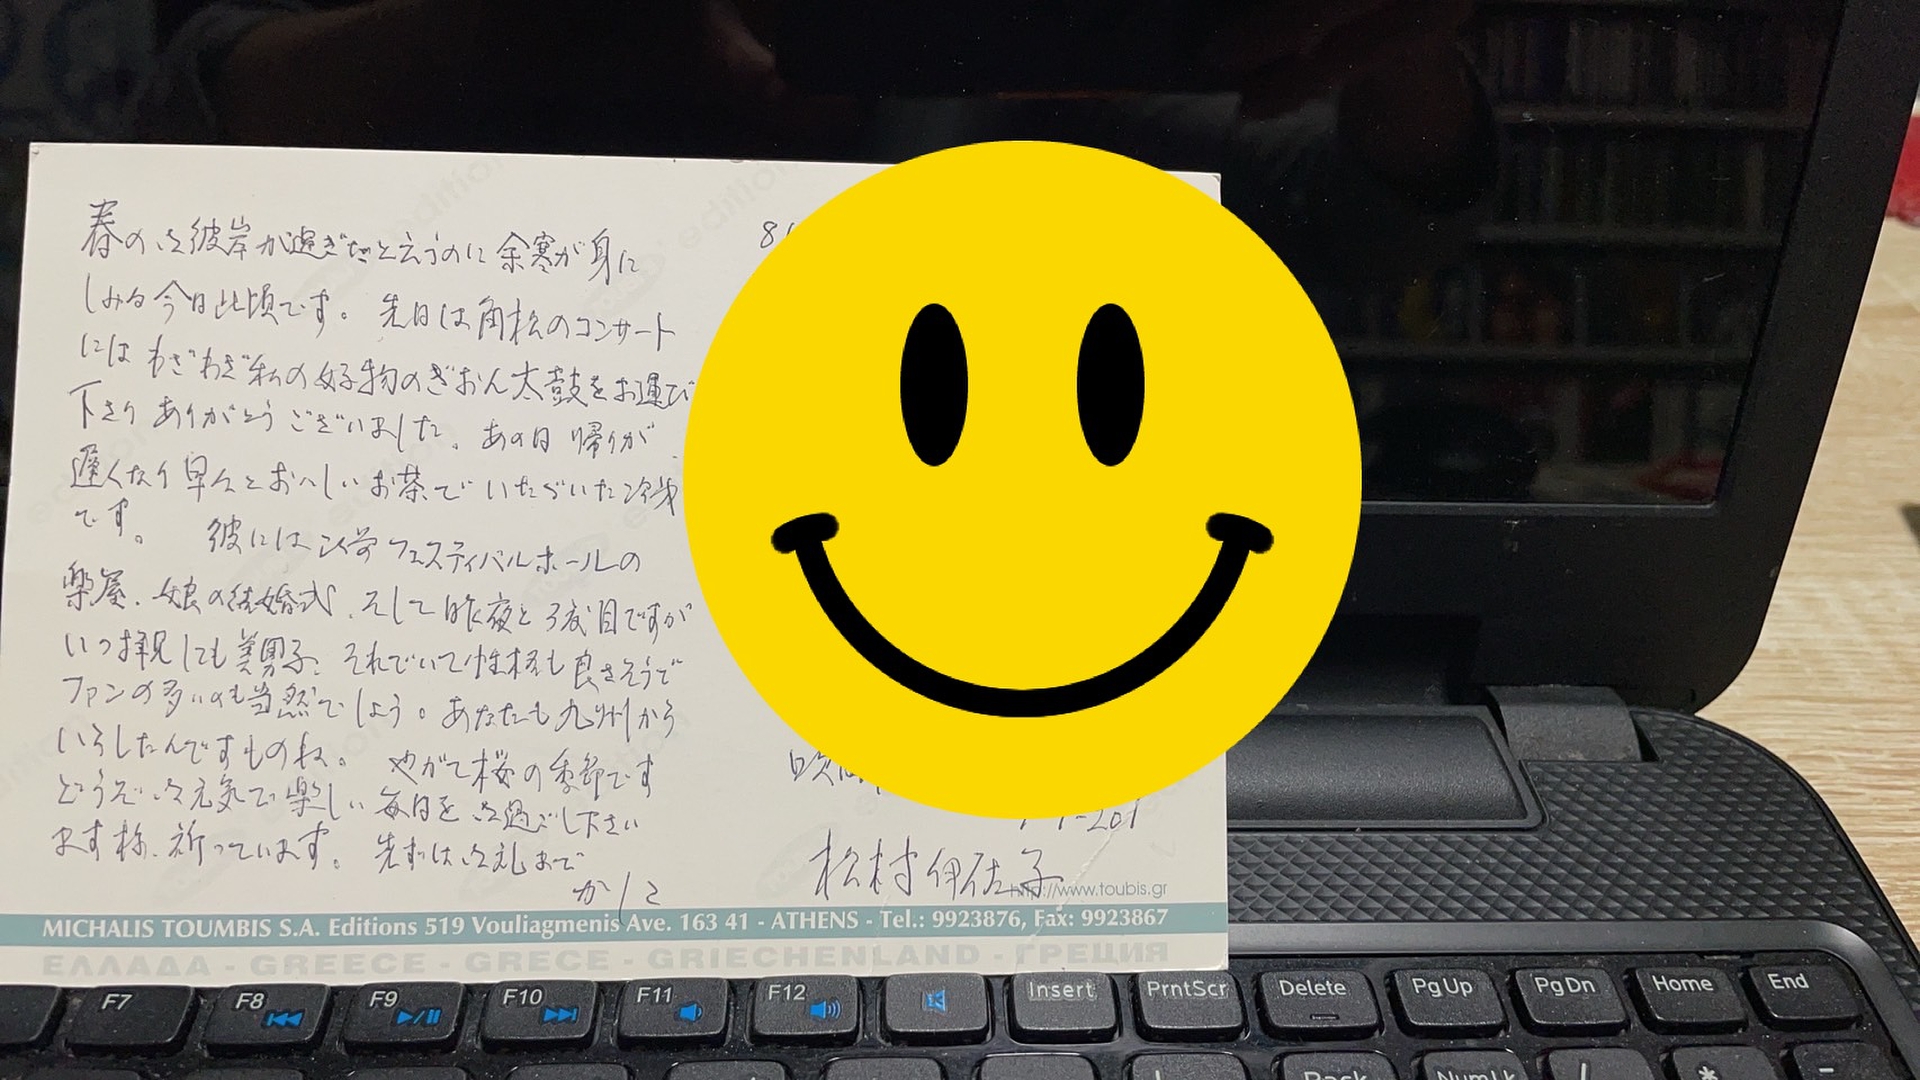 春のお彼岸が過ぎたと云うのに余寒が身に
しみる今日此頃です。 先日は角松のコンサート
にはわざわざ私の好物のぎおん太鼓をお運び
下さり ありがとうございました。あの日 帰りが
遅くなり早々とおいしいお茶でいただいた
です。 彼には フェスティバルホールの
楽屋、娘の結婚式、そして昨夜と3度目ですが
いつ拝見しても美男子、それでいて性格も良さそうで
ファンの多いのも当然でしょう。あなたも九州から
いらしたんですものね。 やがて桜の季節です
どうぞお元気で楽しい毎日をお過ごし下さい
ます様、祈っています。 先ずはお礼まで
かしこ
8
吹
-201
松村伊佐子
http://www.toubis.gr
MICHALIS TOUMBIS S.A. Editions 519 Vouliagmenis Ave. 163 41 - ATHENS - Tel.: 9923876, Fax: 9923867
ΕΛΛΑΔΑ - GREECE - GRECE - GRIECHENLAND - ГРЕЦИЯ
F7 F8 F9 F10 F11 F12 Insert PrntScr Delete PgUp PgDn Home End
Back NumLk / * -